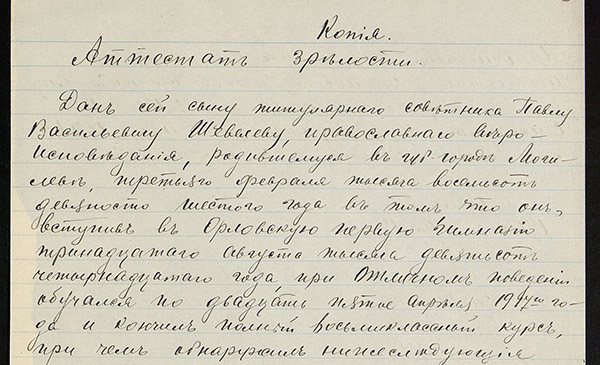 Копія.
Аттестатъ зрѣлости.
Данъ сей сыну титулярнаго совѣтника Павлу
Васильевичу Шевалеву, православнаго вѣро-
исповѣданія, родившемуся въ губ. городѣ Моги-
левѣ, третьяго февраля тысяча восемьсотъ
девяносто шестого года въ томъ, что онъ,
вступивъ въ Орловскую первую Гимназію
тринадцатаго августа тысяча девятьсотъ
четырнадцатаго года, при отличномъ поведеніи
обучался по двадцать пятое апрѣля 1917го го-
да и кончилъ полный восьмикласный курсъ,
при чемъ обнаружилъ нижеслѣдующія